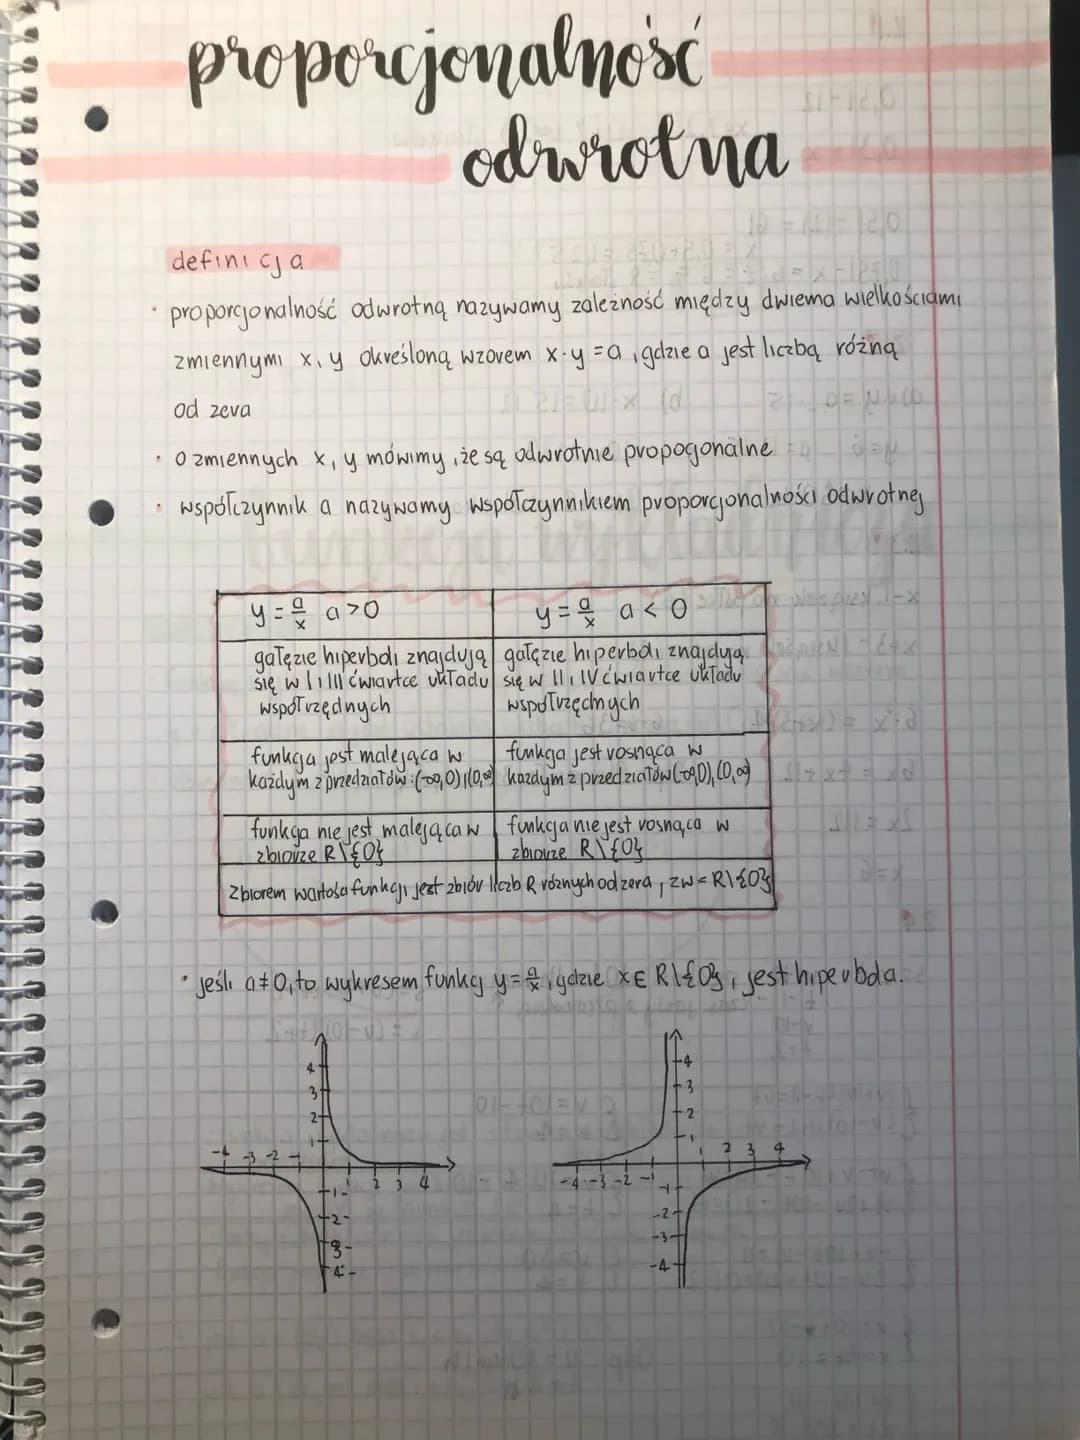 proporcjonalność
odwrotna
definicja
• proporcjonalność odwrotną nazywamy zależność między dwiema wielkościami
zmiennymi x, y określoną wzorem x·y = a, gdzie a jest liczbą różną
od zera
• o zmiennych x, y mówimy, że są odwrotnie propocjonalne
• współczynnik a nazywamy współczynnikiem proporcjonalności odwrotnej
y = a/x a > 0
y = a/x a < 0
gałęzie hiperboli znajdują
się w I i III ćwiartce układu
współrzędnych
gałęzie hiperboli znajdują
się w II i IV ćwiartce układu
współrzędnych
funkcja jest malejąca w
każdym z przedziałów: (-∞,0) i (0,∞)
funkcja jest rosnąca w
każdym z przedziałów (-∞,0), (0,∞)
funkcja nie jest malejąca w
zbiorze R\{0}
funkcja nie jest rosnąca w
zbiorze R\{0}
zbiorem wartości funkcji jest zbiór liczb R różnych od zera, zw = R\{0}
• jeśli a ≠ 0, to wykresem funkcj y = a/x, gdzie x ∈ R\{0}, jest hiperbola.
4
3
2
1
-4 -3 -2 -
1 2 3 4
-1-
-2-
-3-
-4-
4
3
2
1
1 2 3 4
-4 -3 -2 -1
-1
-2
-3
-4